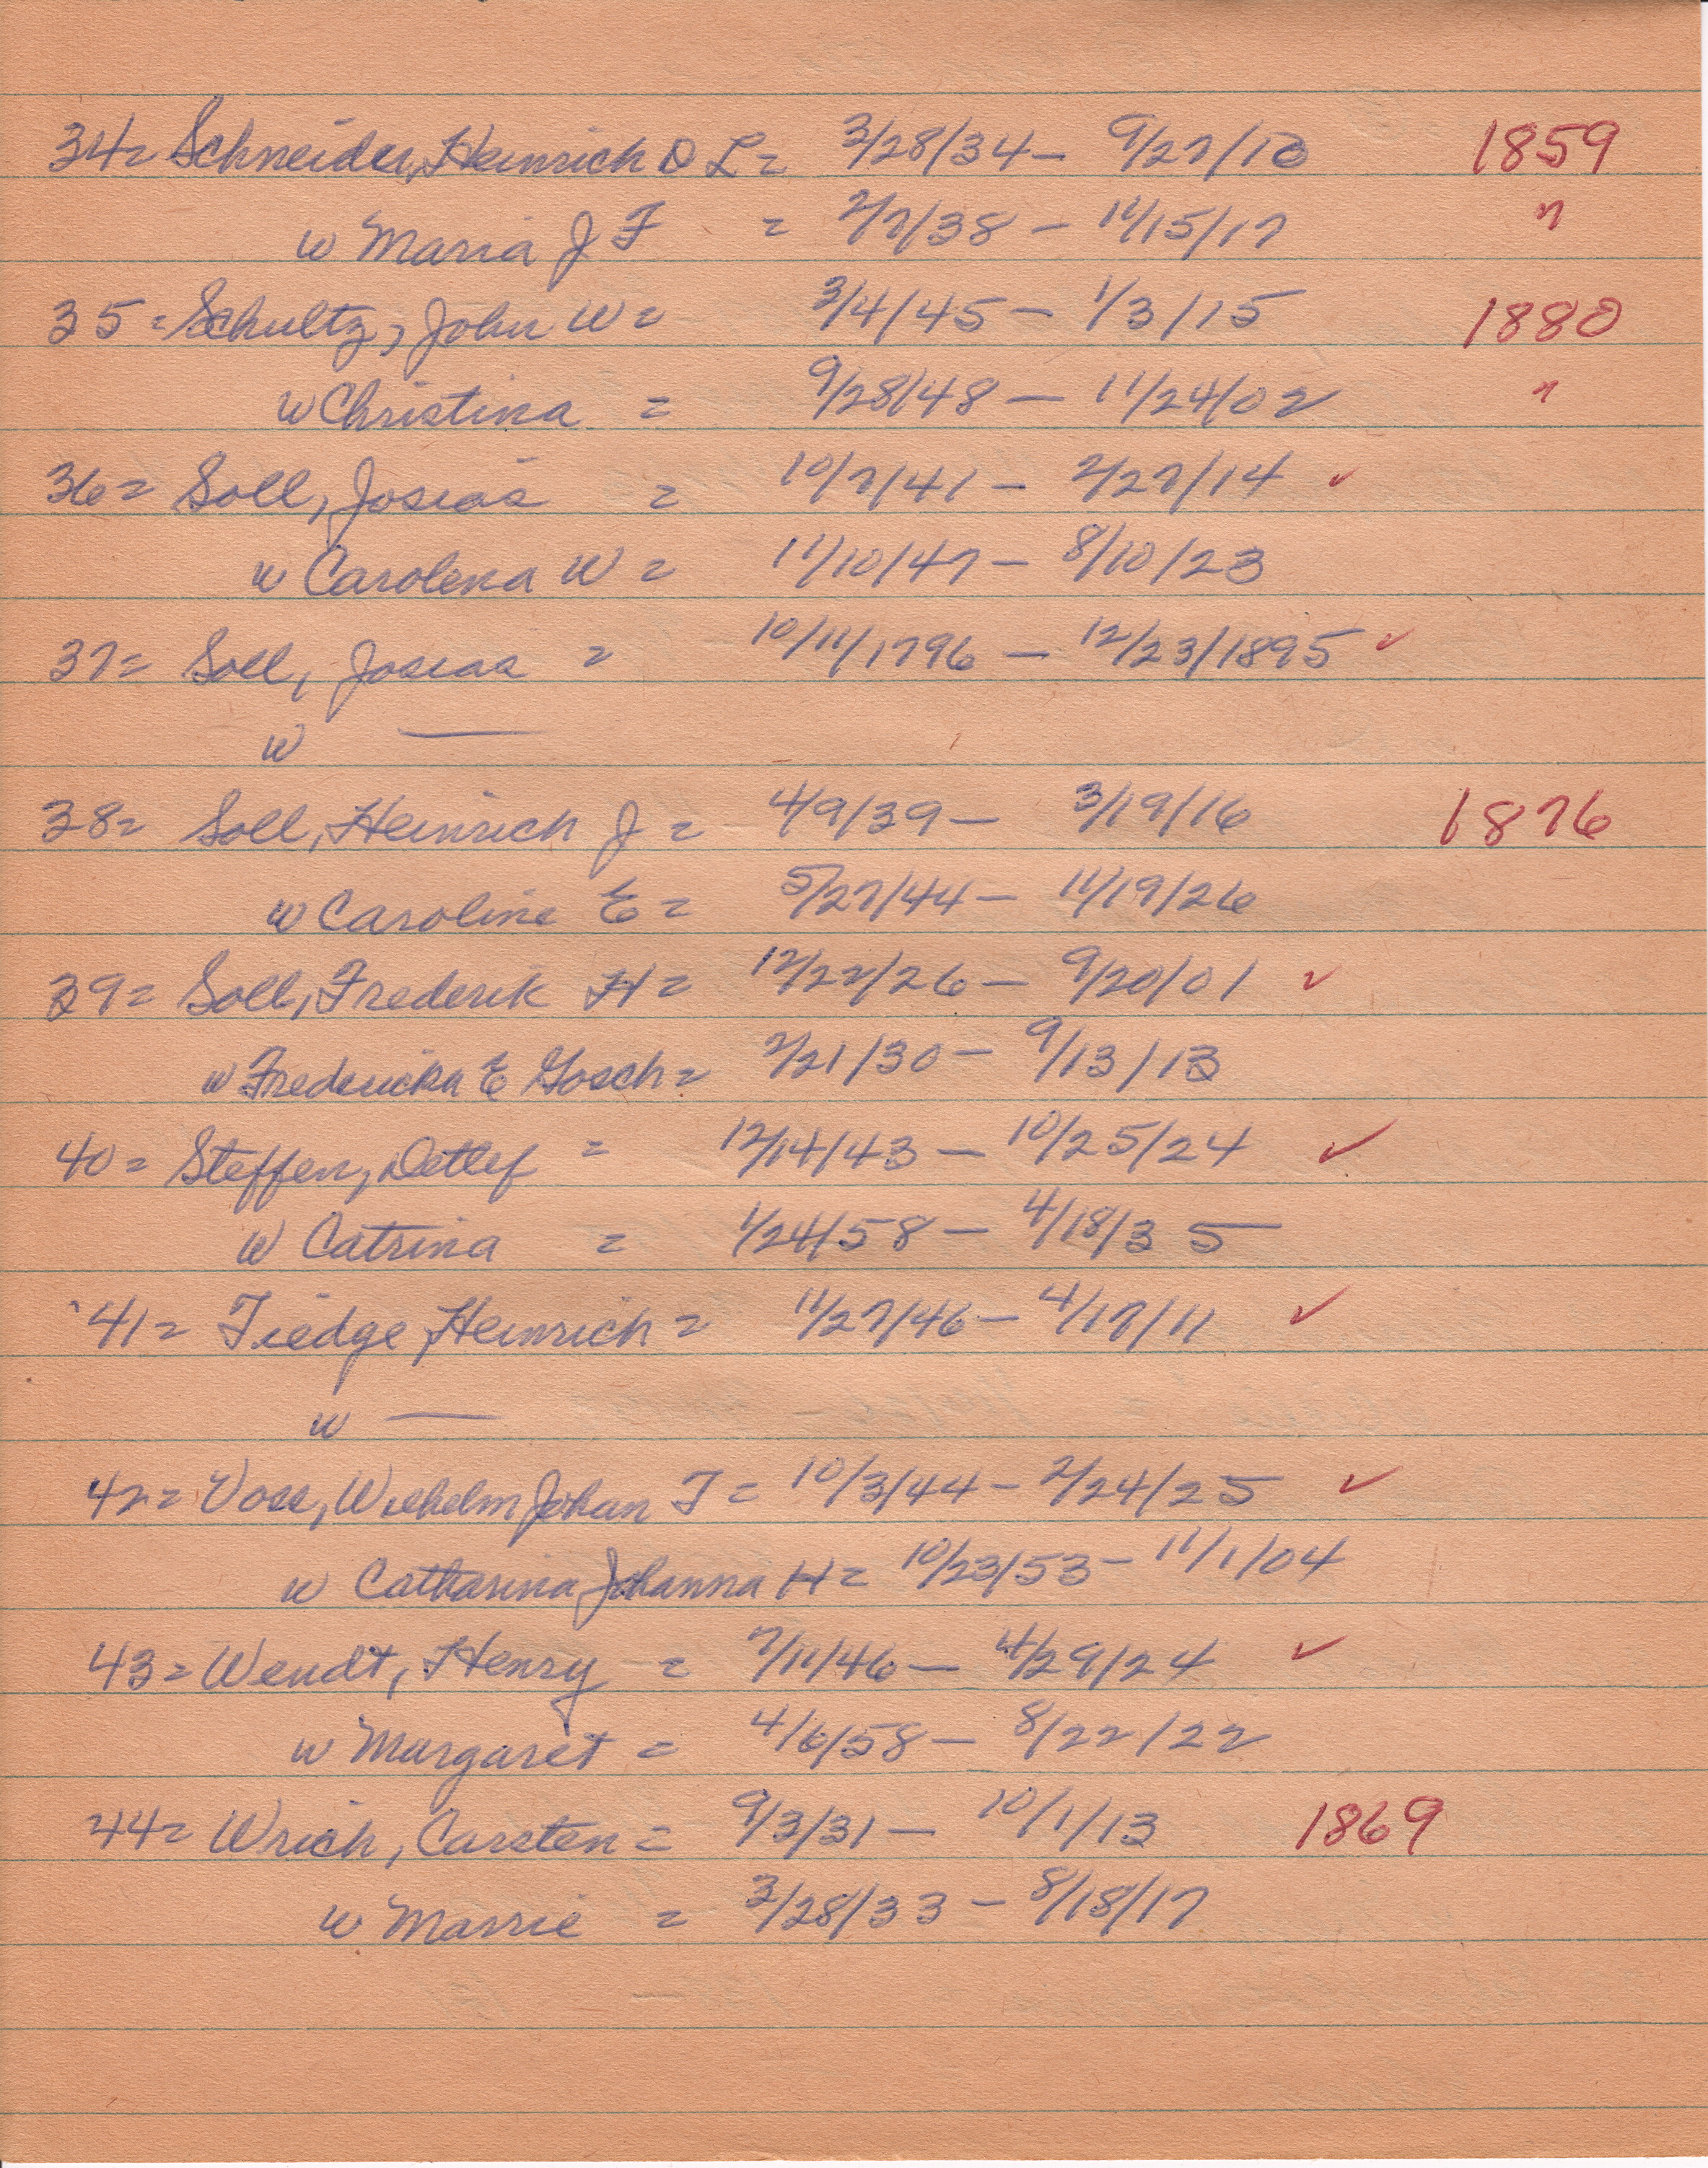 34= Schneider, Heinrich D L = 3/28/34 - 9/27/10 1859
w Maria J F = 2/7/38 - 11/15/17 "
35 = Schultz, John W = 3/4/45 - 1/3/15 1880
w Christina = 9/28/48 - 11/24/02 "
36 = Soll, Josias = 10/7/41 - 2/27/14 ✓
w Carolena W = 11/10/47 - 8/10/23
37 = Soll, Josias = 10/11/1796 - 12/23/1895 ✓
w —
38 = Soll, Heinrich J = 4/9/39 - 3/19/16 1876
w Caroline E = 5/27/44 - 11/19/26
39 = Soll, Frederik H = 12/22/26 - 9/20/01 ✓
w Fredericka E Gosch = 2/21/30 - 9/13/13
40 = Steffen, Detlef = 12/14/43 - 10/25/24 ✓
w Catrina = 1/24/58 - 4/18/35
41 = Tiedge, Heinrich = 11/27/46 - 4/17/11 ✓
w —
42 = Voss, Wilhelm Johan T = 10/3/44 - 2/24/25 ✓
w Catharina Johanna H = 10/23/53 - 11/1/04
43 = Wendt, Henry = 7/11/46 - 4/29/24 ✓
w Margaret = 4/6/58 - 8/22/22
44 = Wrich, Carsten = 9/3/31 - 10/1/13 1869
w Marrie = 3/28/33 - 8/18/17